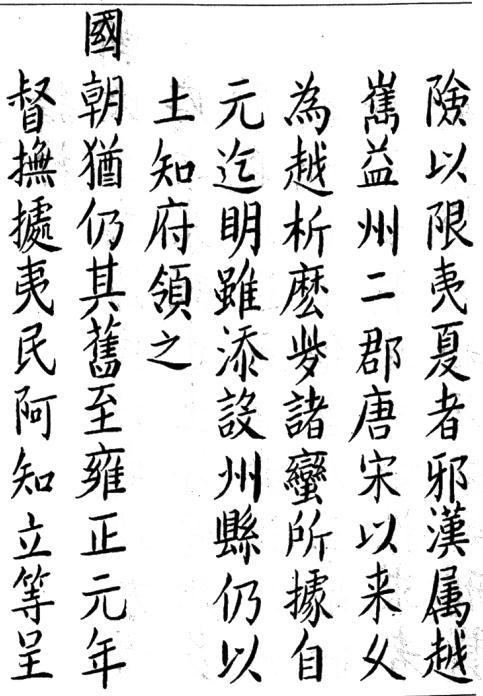 險以限夷夏者邪漢属越
嶲益州二郡唐宋以来乂
為越析麽㱔諸蠻所據自
元迄明雖添設州縣仍以
土知府領之
國朝猶仍其舊至雍正元年
督撫據夷民阿知立等呈